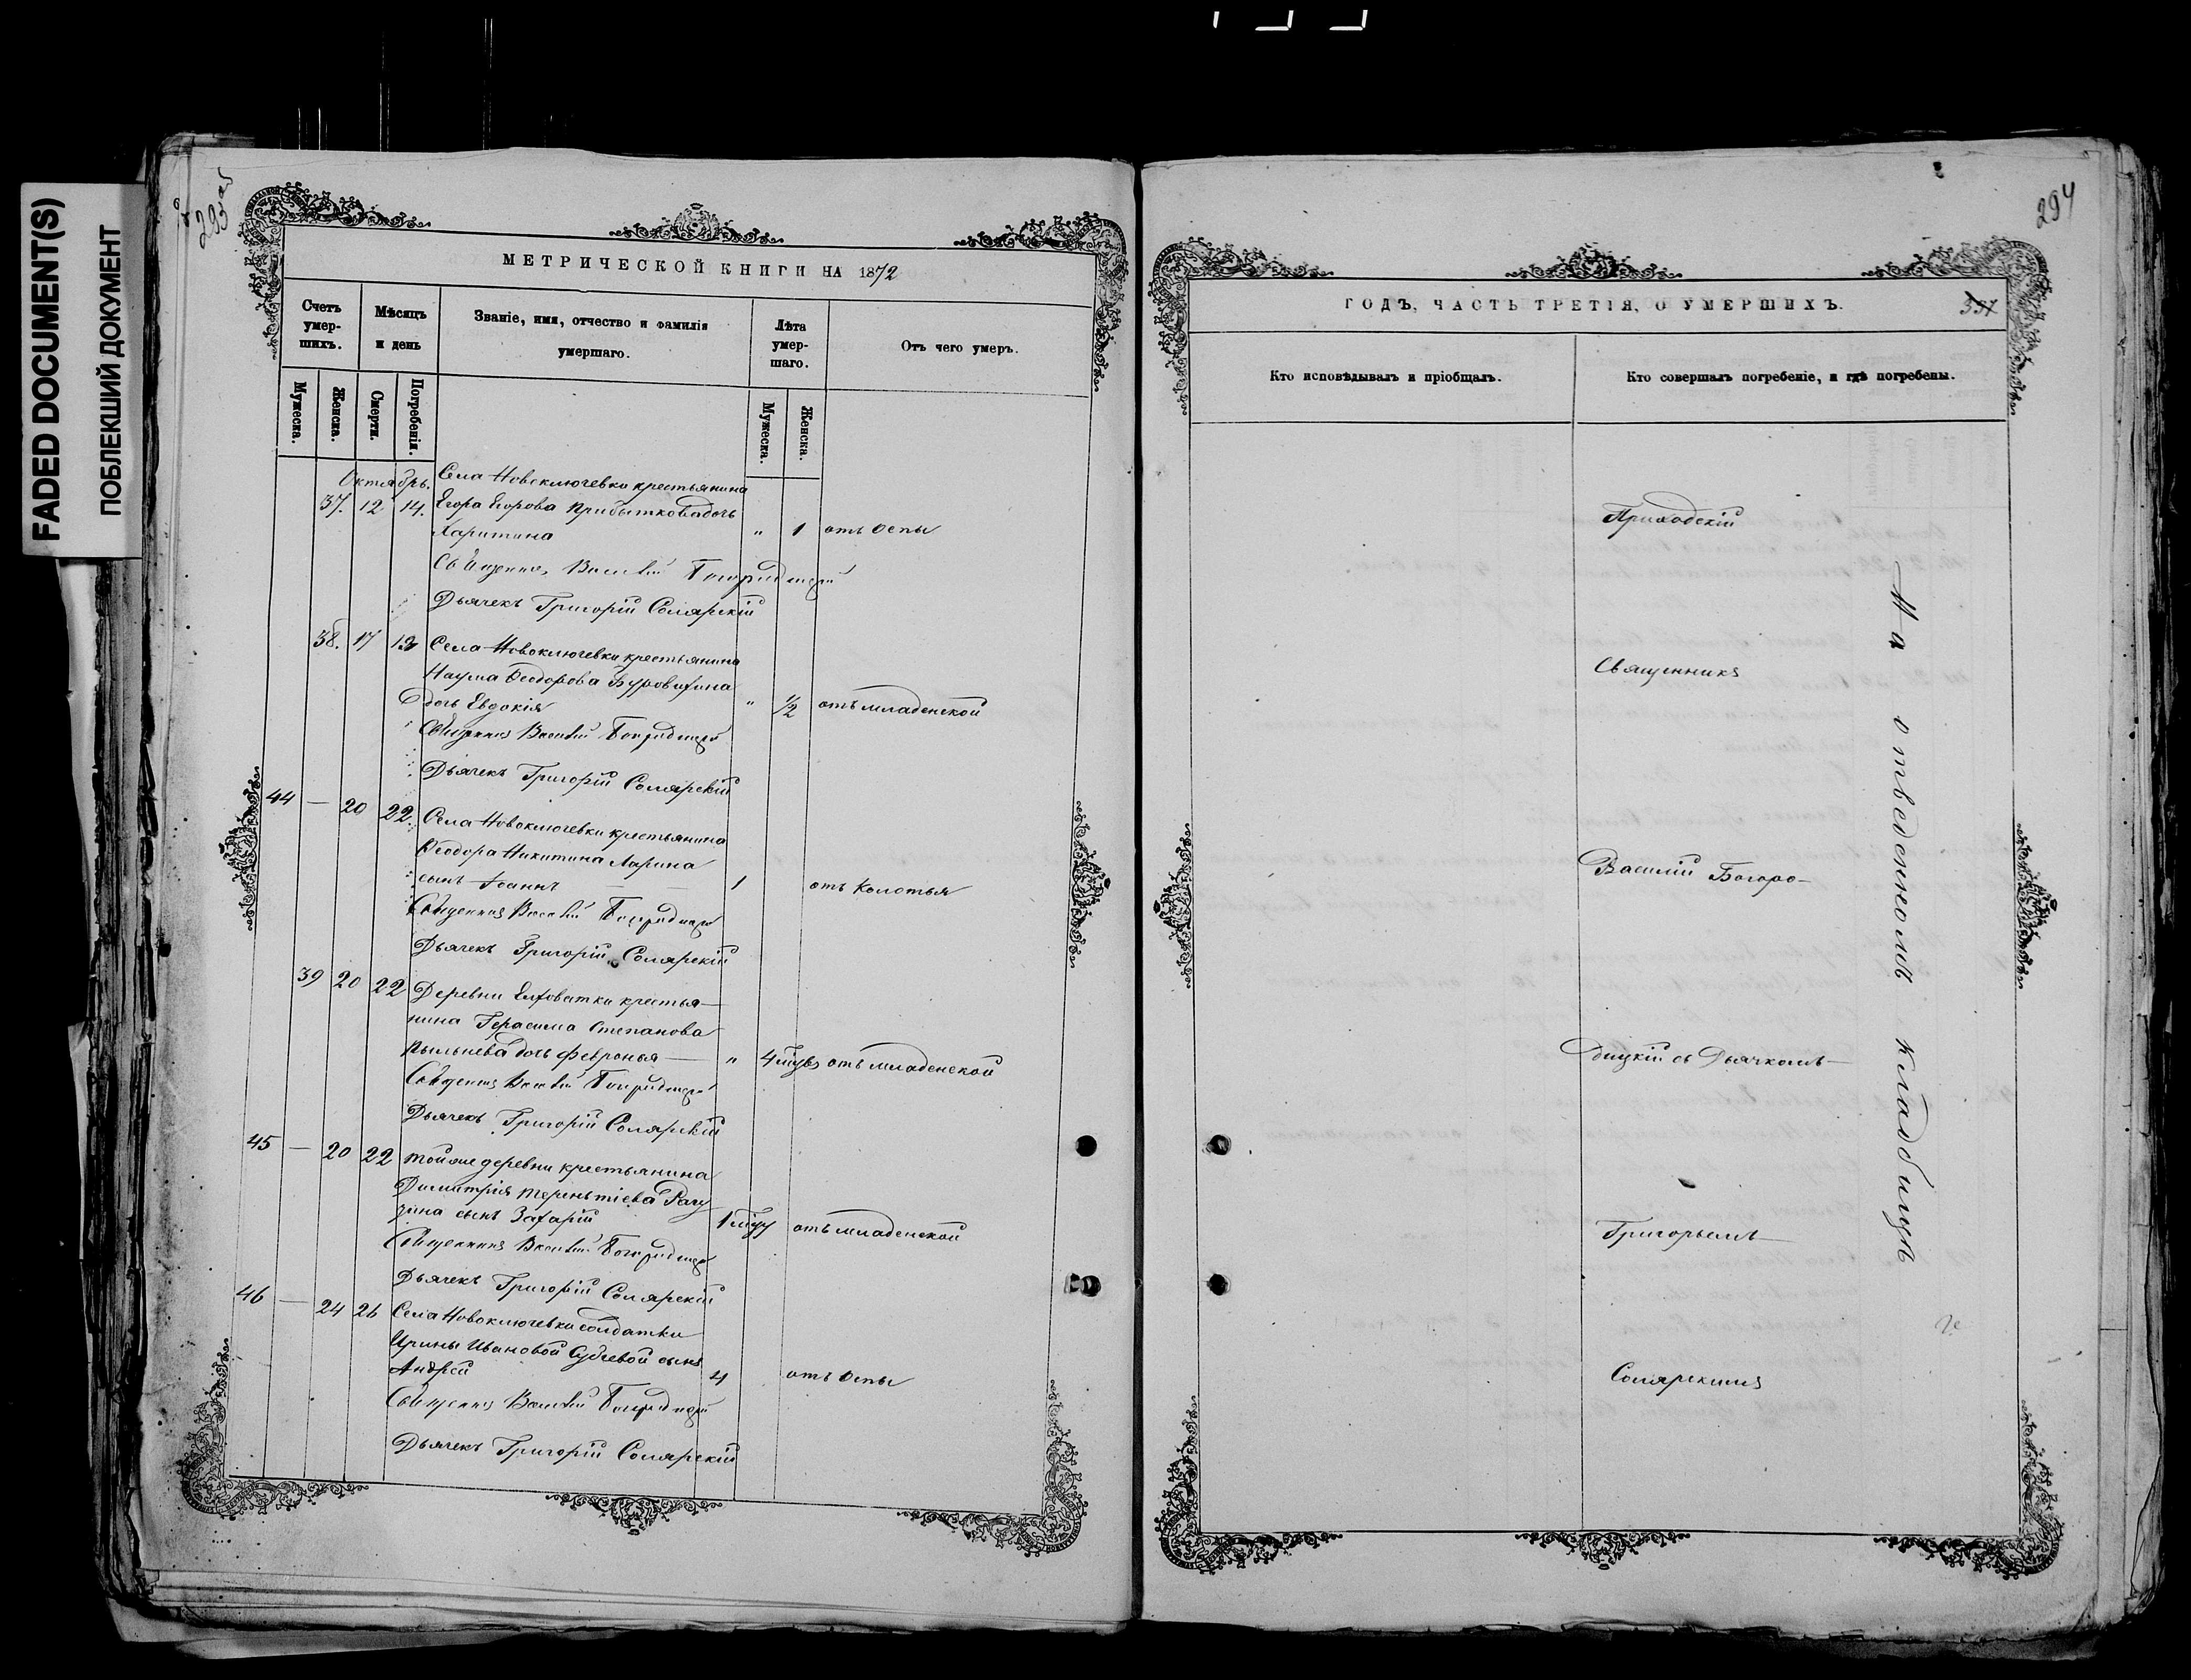 FADED DOCUMENT(S)
ПОБЛЕКШИЙ ДОКУМЕНТ
МЕТРИЧЕСКОЙ КНИГИ НА 1872
Счетъ умер-шихъ.
Мѣсяцъ и день
Званіе, имя, отчество и фамилія умершаго.
Лѣта умер-шаго.
Отъ чего умеръ.
Мужеска.
Женска.
Смерти.
Погребенія.
Мужеска.
Женска.
Октябрь. Села Новоключевки крестьянина
37. 12 14. Егора Егорова Прибыткова дочь
Харитина " 1 отъ Оспы
Священникъ Василій
Дьячекъ Григорій Солярскій
38. 17 Села Новоключевки крестьянина
Наума Ѳеодорова
дочь Евдокія " 1/2 отъ младенской
Священникъ Василій
Дьячекъ Григорій Солярскій
44 — 20 22. Села Новоключевки крестьянина
Ѳеодора Никитина Ларина
сынъ Іоаннъ 1 отъ Колотья
Священникъ Василій
Дьячекъ Григорій Солярскій
39 20 22 Деревни Елховатки крестья-
нина Герасима Степанова
Пыльнева дочь Февронья — " 4 отъ младенской
Священникъ Василій
Дьячекъ Григорій Солярскій
45 — 20 22 Той же деревни крестьянина
Димитрія Терентіева
сынъ Захарій 1 отъ младенской
Священникъ Василій
Дьячекъ Григорій Солярскій
46 — 24 26 Села Новоключевки солдатки
Ирины Ивановой сынъ
Андрей 4 отъ Оспы
Священникъ Василій
Дьячекъ Григорій Солярскій
294
ГОДЪ, ЧАСТЬ ТРЕТІЯ, О УМЕРШИХЪ.
Кто исповѣдывалъ и пріобщалъ.
Кто совершалъ погребеніе, и гдѣ погребены.
Приходскій
Священникъ
Василій Богоро-
дицкій съ Дьячкомъ —
Григорьемъ —
Солярскимъ
На отведенномъ кладбищѣ